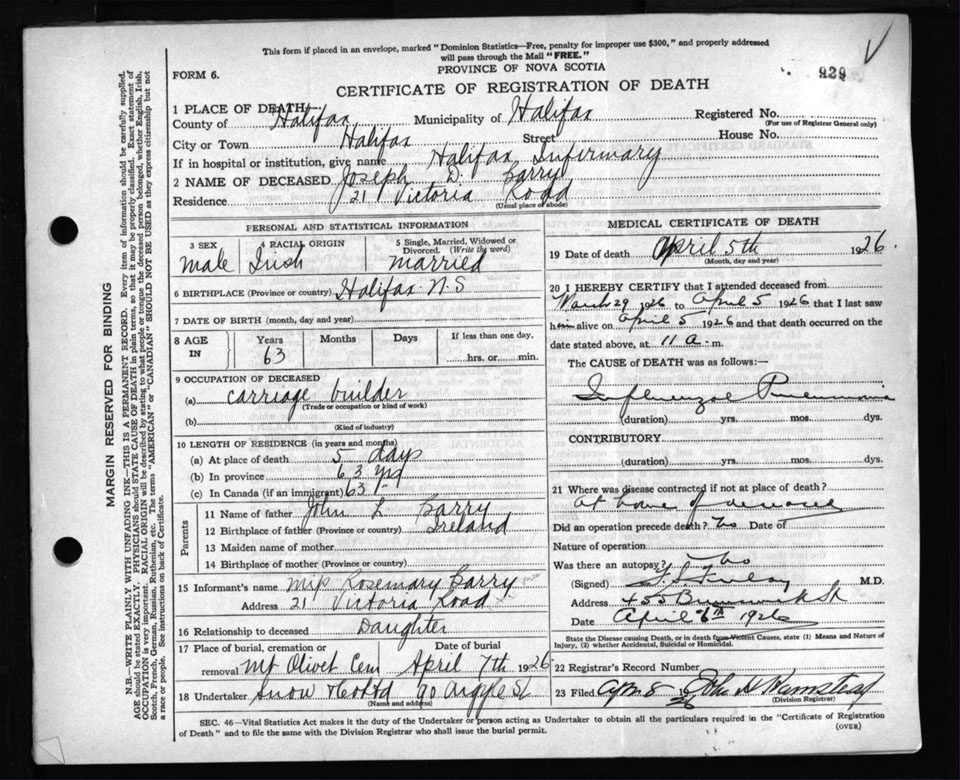 This form if placed in an envelope, marked "Dominion Statistics—Free, penalty for improper use $300," and properly addressed
will pass through the Mail "FREE."
PROVINCE OF NOVA SCOTIA
929
FORM 6.
CERTIFICATE OF REGISTRATION OF DEATH
1 PLACE OF DEATH—
County of Halifax Municipality of Halifax Registered No.
(For use of Registrar General only)
City or Town Halifax Street House No.
If in hospital or institution, give name Halifax Infirmary
2 NAME OF DECEASED Joseph D. Barry
Residence 21 Victoria Road
(Usual place of abode)
PERSONAL AND STATISTICAL INFORMATION
3 SEX Male
4 RACIAL ORIGIN Irish
5 Single, Married, Widowed or Divorced. (Write the word) married
6 BIRTHPLACE (Province or country) Halifax N.S
7 DATE OF BIRTH (month, day and year)
8 AGE IN Years 63 Months Days If less than one day, hrs. or min.
9 OCCUPATION OF DECEASED
(a) carriage builder
(Trade or occupation or kind of work)
(b)
(Kind of industry)
10 LENGTH OF RESIDENCE (in years and months)
(a) At place of death 5 days
(b) In province 63 yrs
(c) In Canada (if an immigrant) 63
Parents
11 Name of father John L Barry
12 Birthplace of father (Province or country) Ireland
13 Maiden name of mother
14 Birthplace of mother (Province or country)
15 Informant's name Rosemary Barry
Address 21 Victoria Road
16 Relationship to deceased Daughter
17 Place of burial, cremation or removal Mt Olivet Cem Date of burial April 7th 1926
18 Undertaker Snow & Co Ltd 90 Argyle St
(Name and address)
MEDICAL CERTIFICATE OF DEATH
19 Date of death April 5th 1926
(Month, day and year)
20 I HEREBY CERTIFY that I attended deceased from
March 29 1926 to April 5 1926 that I last saw
him alive on April 5 1926 and that death occurred on the
date stated above, at 11 a. m.
The CAUSE OF DEATH was as follows:—
Influenzal Pneumonia
(duration) yrs. mos. dys.
CONTRIBUTORY
(duration) yrs. mos. dys.
21 Where was disease contracted if not at place of death?
At home of
Did an operation precede death? No Date of
Nature of operation
Was there an autopsy? No
(Signed) M.D.
Address 455 Brunswick St
Date April 6th 1926
State the Disease causing Death, or in death from Violent Causes, state (1) Means and Nature of
Injury, (2) whether Accidental, Suicidal or Homicidal.
22 Registrar's Record Number
23 Filed Apr 8 26 John H
(Division Registrar)
SEC. 46—Vital Statistics Act makes it the duty of the Undertaker or person acting as Undertaker to obtain all the particulars required in the "Certificate of Registration
of Death" and to file the same with the Division Registrar who shall issue the burial permit.
(OVER)
MARGIN RESERVED FOR BINDING
N.B.—WRITE PLAINLY WITH UNFADING INK—THIS IS A PERMANENT RECORD. Every item of information should be carefully supplied.
AGE should be stated EXACTLY. PHYSICIANS should STATE CAUSE OF DEATH in plain terms, so that it may be properly classified. Exact statement of
OCCUPATION is very important. RACIAL ORIGIN will be described by stating to what people or tongue the deceased person belonged, whether English, Irish,
Scotch, French, German, Russian, Ruthenian, etc. The terms "AMERICAN" or "CANADIAN" SHOULD NOT BE USED as they express citizenship but not
a race or people. See instructions on back of Certificate.